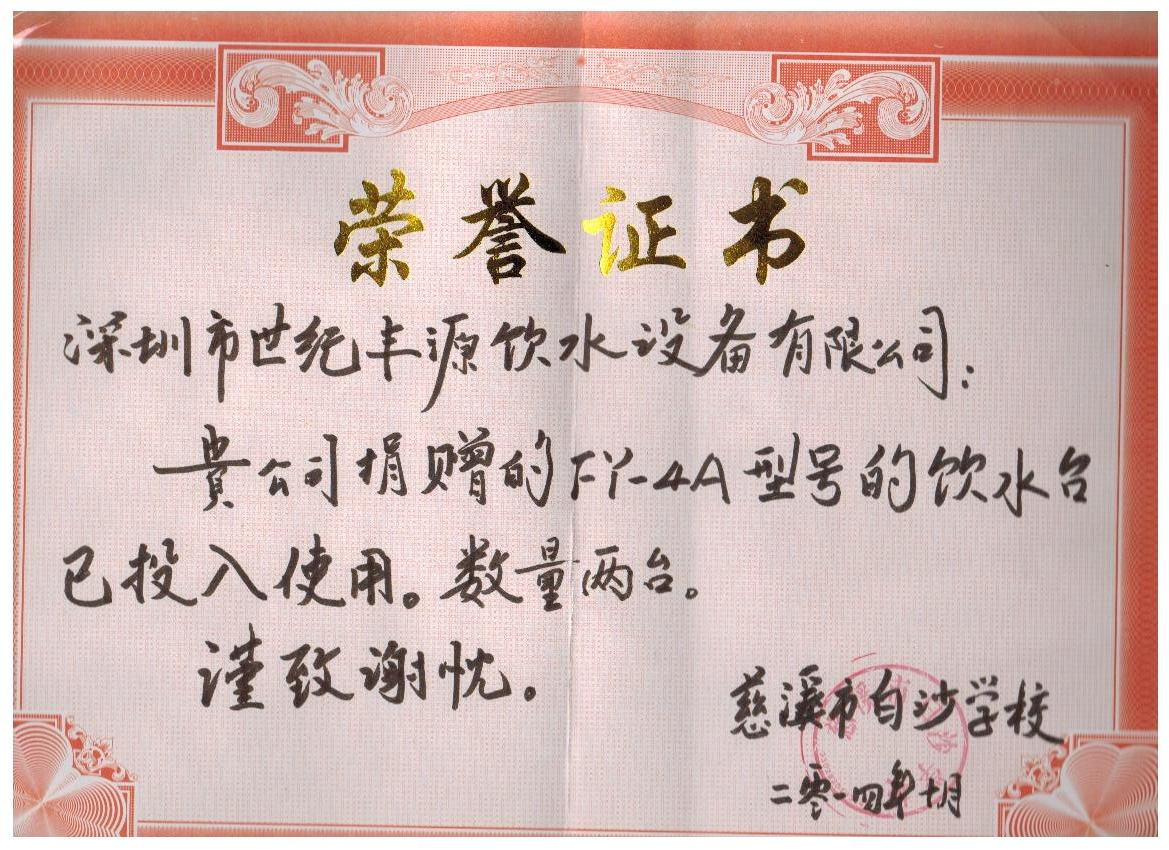 荣誉证书
深圳市世纪丰源饮水设备有限公司:
貴公司捐赠的FY-4A型号的饮水台
已投入使用。数量两台。
谨致谢忱。
慈溪市白沙学校
二零一四年十月